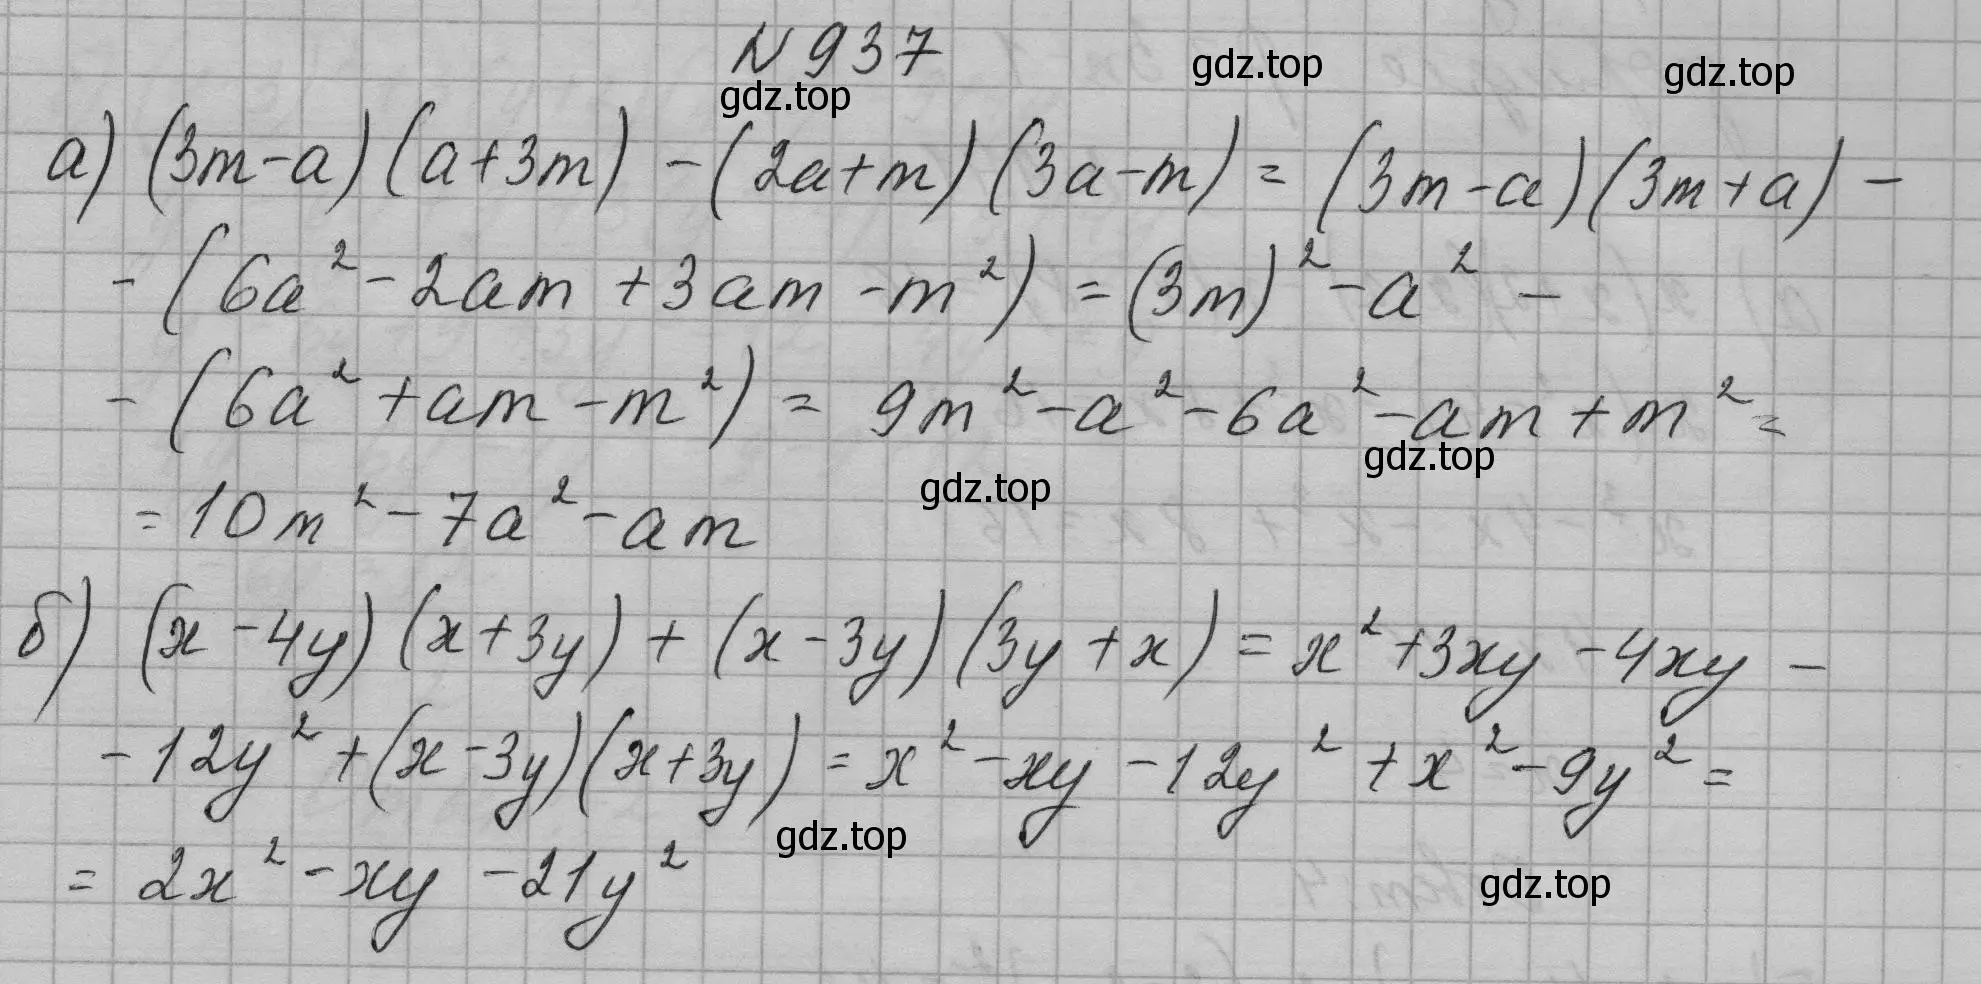 N 937
gdz.top
gdz.top
gdz.top
а) (3m-a)(a+3m) -(2a+m)(3a-m) = (3m-a)(3m+a) -
- (6a² - 2am + 3am - m²) = (3m)² - a² -
- (6a² + am - m²) = 9m² - a² - 6a² - am + m² =
gdz.top
gdz.top
= 10m² - 7a² - am
б) (x - 4y)(x + 3y) + (x - 3y)(3y + x) = x² + 3xy - 4xy -
- 12y² + (x - 3y)(x + 3y) = x² - xy - 12y² + x² - 9y² =
gdz.top
= 2x² - xy - 21y²
gdz.top